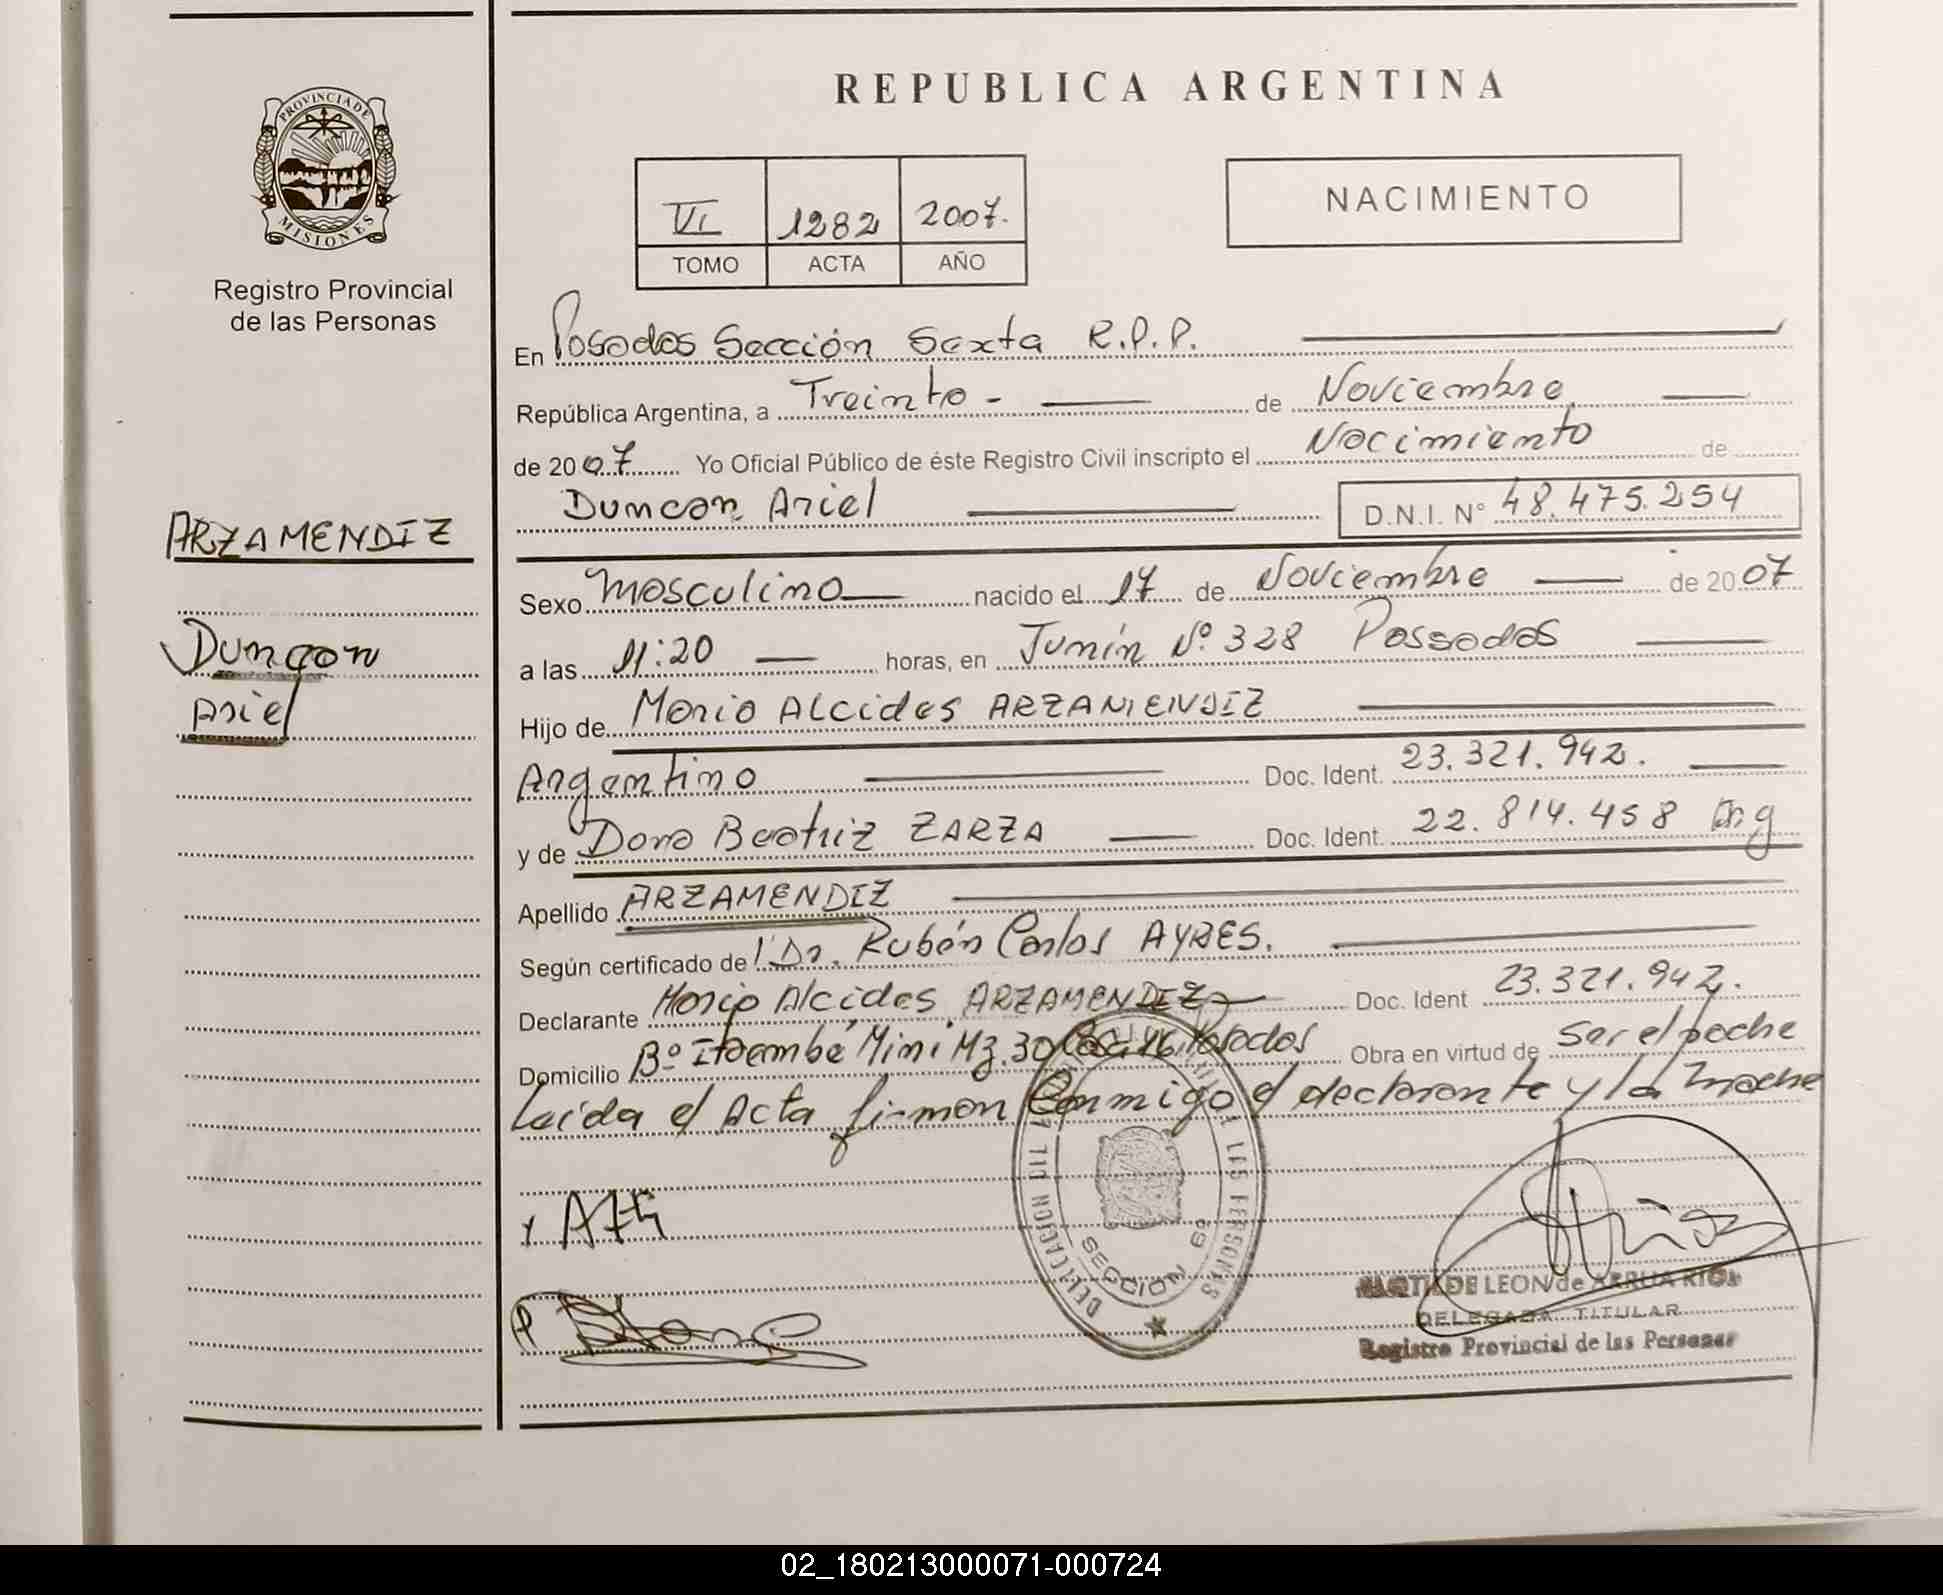 REPUBLICA ARGENTINA
PROVINCIA DE
MISIONES
Registro Provincial
de las Personas
VI 1282 2007.
TOMO ACTA AÑO
NACIMIENTO
En Posadas Sección Sexta R.P.P.
República Argentina, a Treinta - de Noviembre
de 2007 Yo Oficial Público de éste Registro Civil inscripto el Nacimiento de
Duncan Ariel D.N.I. N° 48.475.254
ARZAMENDIZ
Duncan
Ariel
Sexo Masculino nacido el 17 de Noviembre de 2007
a las 11:20 horas, en Junín Nº 328 Possadas
Hijo de Mario Alcides ARZAMENDIZ
Argentino Doc. Ident. 23.321.942.
y de Dora Beatriz ZARZA Doc. Ident. 22.814.458 Arg
Apellido ARZAMENDIZ
Según certificado de Dr. Rubén Carlos AYRES.
Declarante Mario Alcides ARZAMENDIZ Doc. Ident 23.321.942.
Domicilio Bº Itaembé Mini Mz. 30 16 Posadas Obra en virtud de ser el padre
Leída el Acta firman Conmigo el declarante y la madre
DELEGACION DE LAS PERSONAS
SECCION 6º
LEON de ARRUA RIOS
DELEGADA TITULAR
Registro Provincial de las Personas
02_180213000071-000724